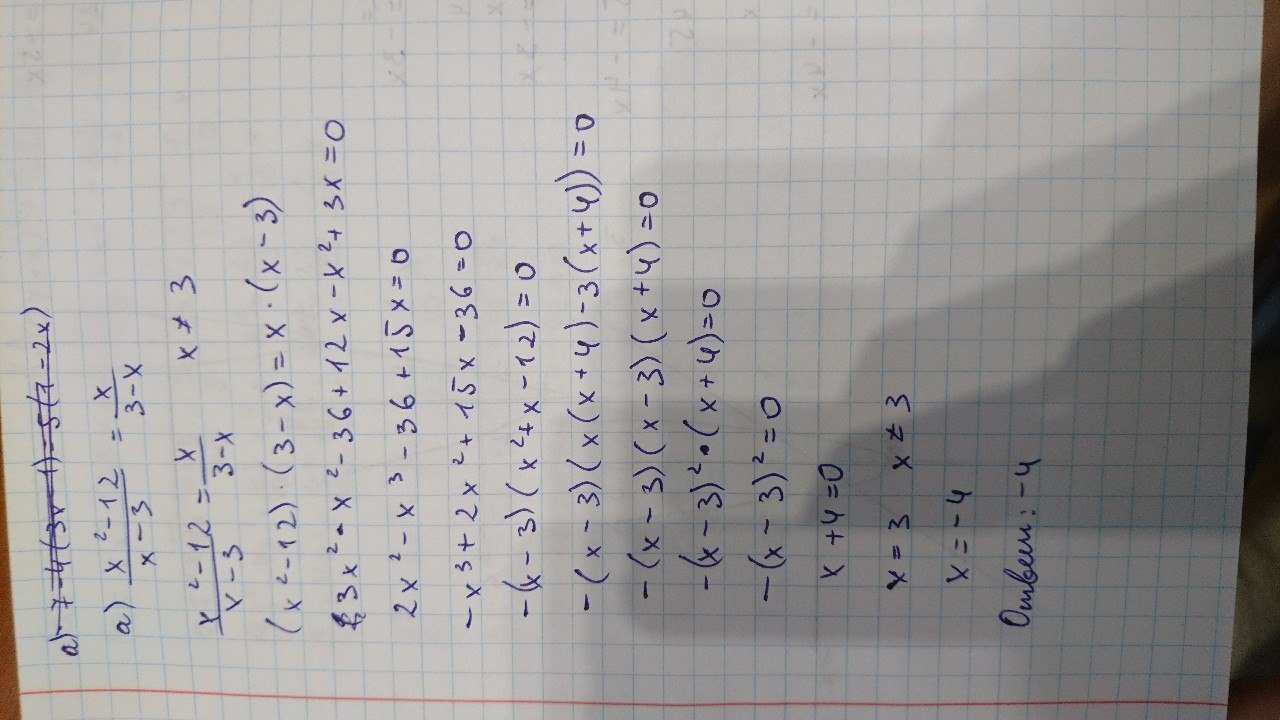 а) 7-4(3x-1)=5(1-2x)
а) x²-12/x-3 = x/3-x
x²-12/x-3 = x/3-x x≠3
(x²-12)·(3-x)=x·(x-3)
3x²-x²-36+12x-x²+3x=0
2x²-x³-36+15x=0
-x³+2x²+15x-36=0
-(x-3)(x²+x-12)=0
-(x-3)(x(x+4)-3(x+4))=0
-(x-3)(x-3)(x+4)=0
-(x-3)²·(x+4)=0
-(x-3)²=0
x+4=0
x=3 x≠3
x=-4
Ответ: -4